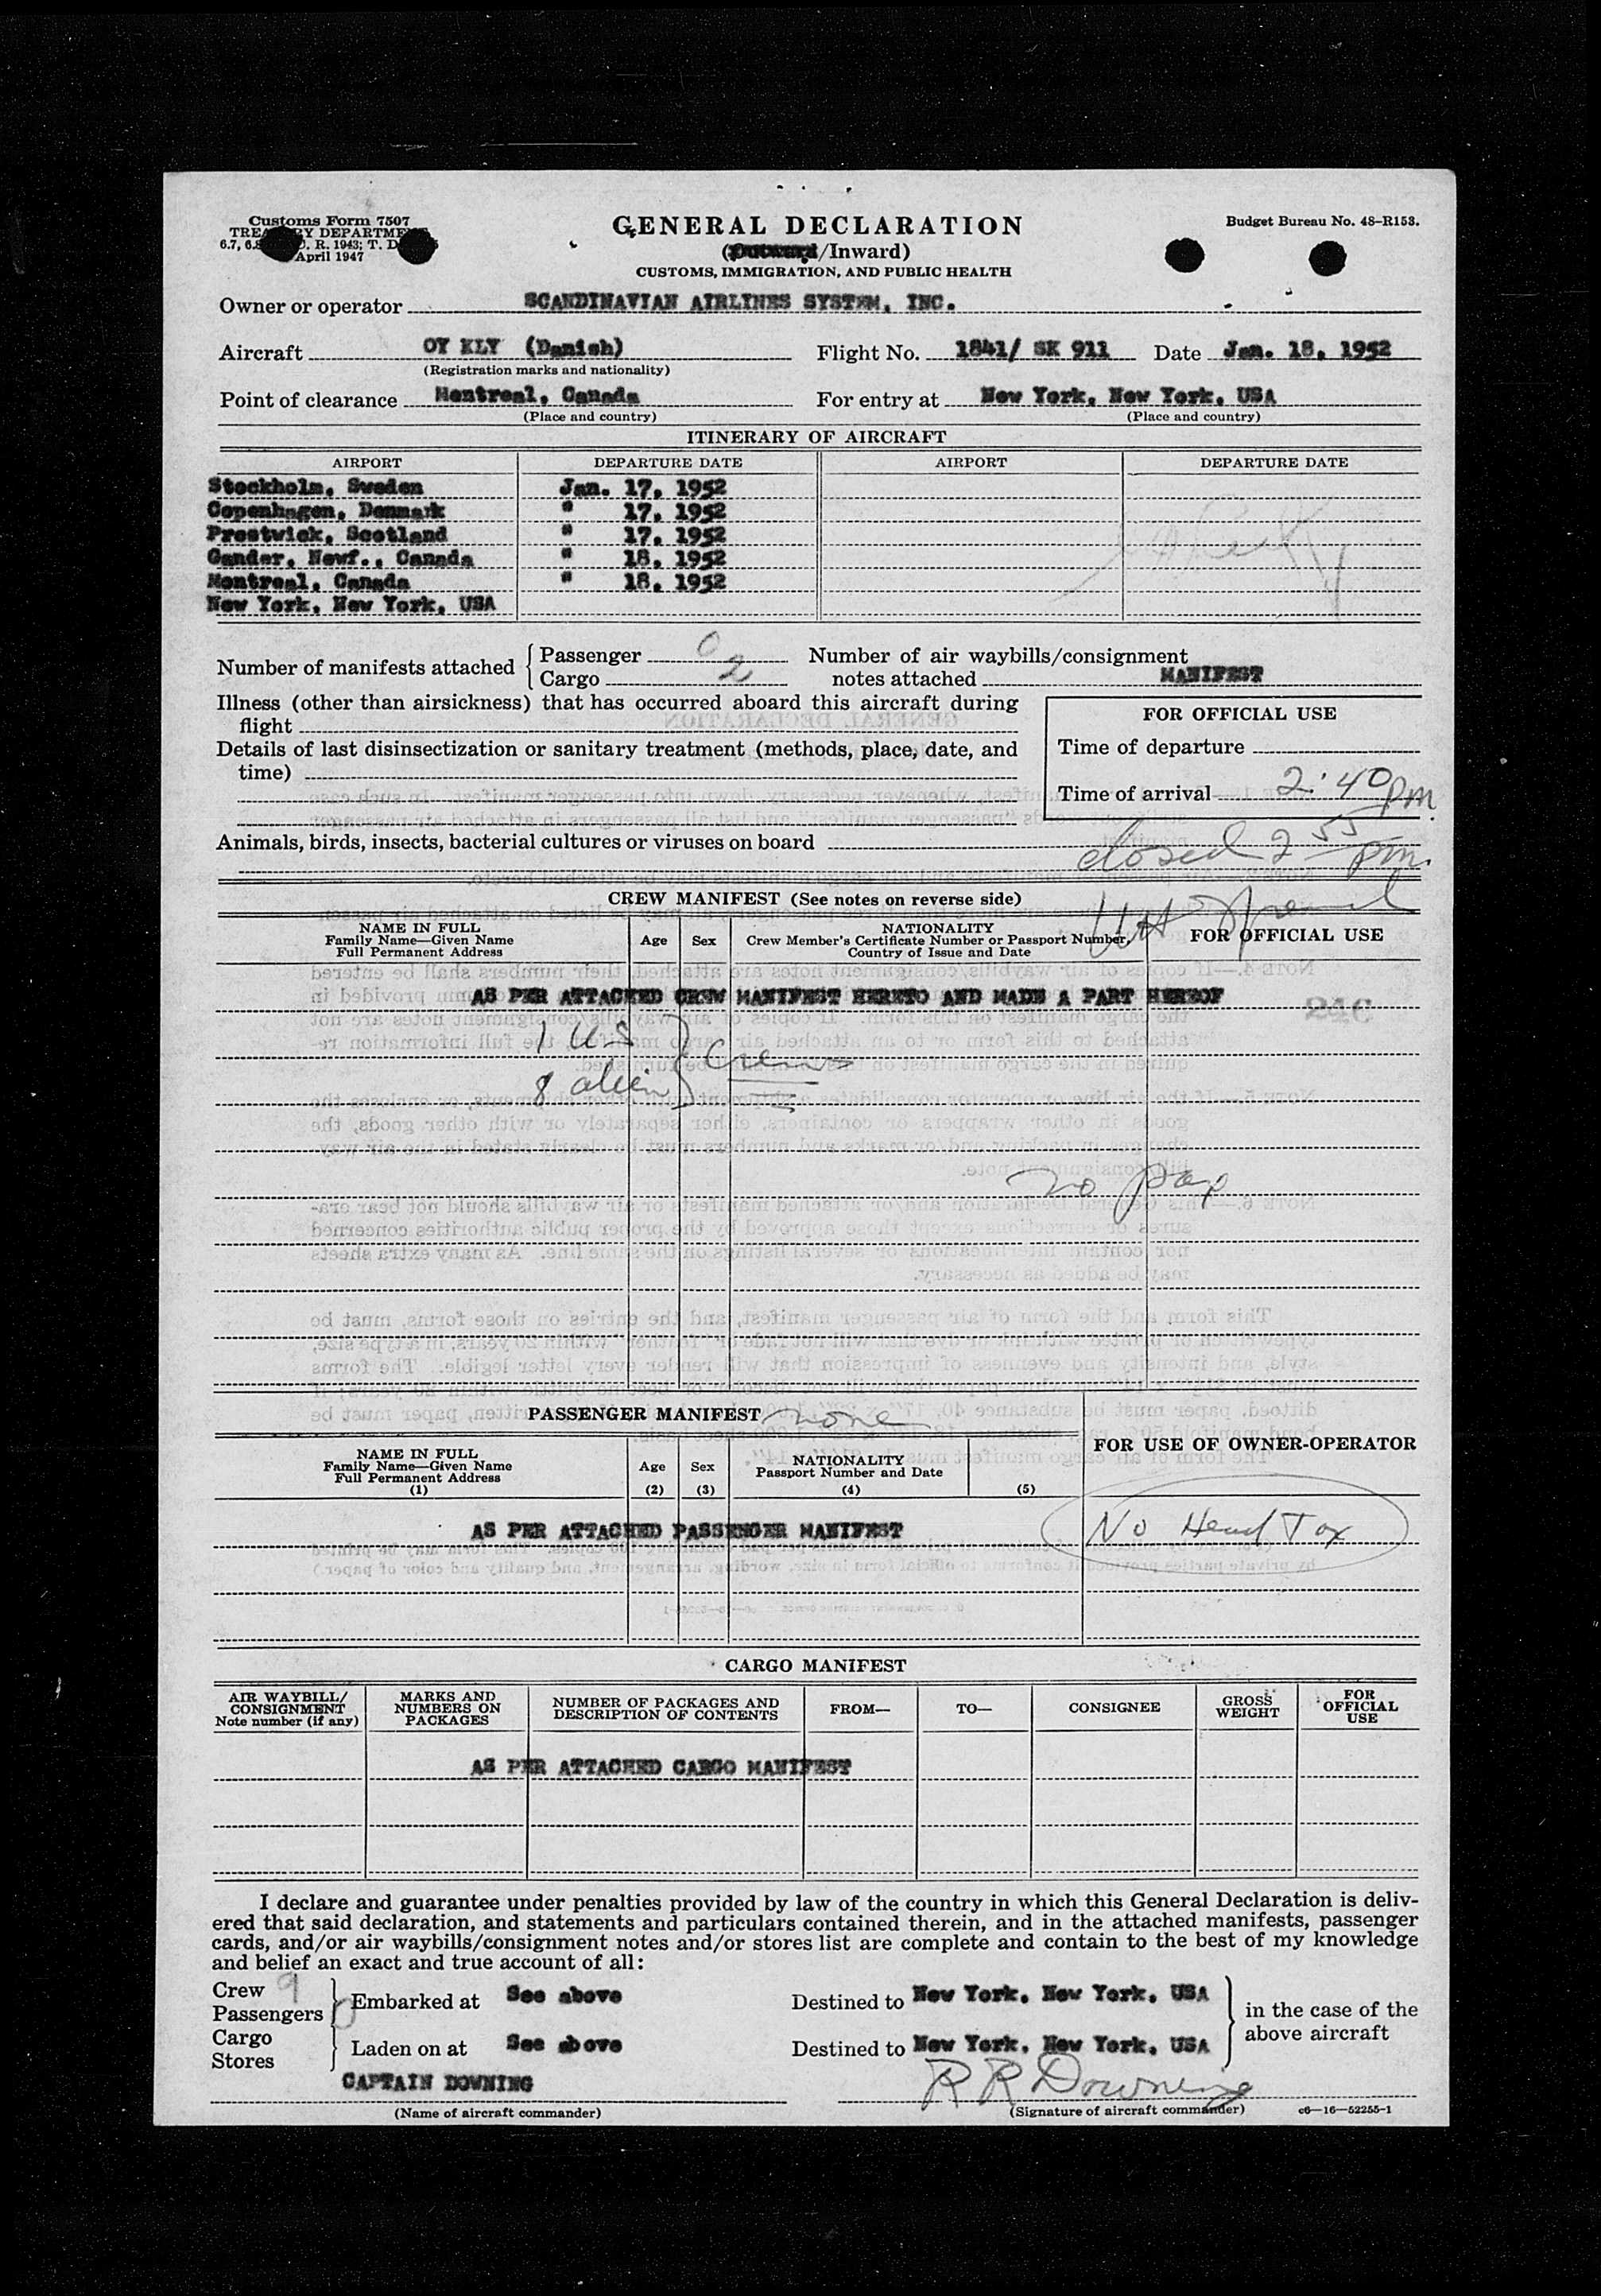 Customs Form 7507
GENERAL DECLARATION
Budget Bureau No. 48–R153.
TREASURY DEPARTMENT
(Outward/Inward)
6.7, 6.8 C. R. 1943; T. D.
April 1947
CUSTOMS, IMMIGRATION, AND PUBLIC HEALTH
Owner or operator SCANDINAVIAN AIRLINES SYSTEM, INC.
Aircraft OY KLY (Danish) Flight No. 1841/ SK 911 Date Jan. 18, 1952
(Registration marks and nationality)
Point of clearance Montreal, Canada For entry at New York, New York, USA
(Place and country) (Place and country)
ITINERARY OF AIRCRAFT
AIRPORT DEPARTURE DATE AIRPORT DEPARTURE DATE
Stockholm, Sweden Jan. 17, 1952
Copenhagen, Denmark " 17, 1952
Prestwick, Scotland " 17, 1952
Gander, Newf., Canada " 18, 1952
Montreal, Canada " 18, 1952
New York, New York, USA
Number of manifests attached { Passenger 0 Number of air waybills/consignment
Cargo 2 notes attached MANIFEST
Illness (other than airsickness) that has occurred aboard this aircraft during
flight
FOR OFFICIAL USE
Details of last disinsectization or sanitary treatment (methods, place, date, and
time)
Time of departure
Time of arrival 2:40 pm
Animals, birds, insects, bacterial cultures or viruses on board
closed 2 55 pm.
CREW MANIFEST (See notes on reverse side)
NAME IN FULL
Family Name—Given Name
Full Permanent Address
Age Sex
NATIONALITY
Crew Member's Certificate Number or Passport Number,
Country of Issue and Date
FOR OFFICIAL USE
AS PER ATTACHED CREW MANIFEST HERETO AND MADE A PART HEREOF
1 US
8 alien } Crew
no pap
PASSENGER MANIFEST none
FOR USE OF OWNER-OPERATOR
NAME IN FULL
Family Name—Given Name
Full Permanent Address
(1)
Age
(2)
Sex
(3)
NATIONALITY
Passport Number and Date
(4)
(5)
No Head Tax
AS PER ATTACHED PASSENGER MANIFEST
CARGO MANIFEST
AIR WAYBILL/
CONSIGNMENT
Note number (if any)
MARKS AND
NUMBERS ON
PACKAGES
NUMBER OF PACKAGES AND
DESCRIPTION OF CONTENTS
FROM—
TO—
CONSIGNEE
GROSS
WEIGHT
FOR
OFFICIAL
USE
AS PER ATTACHED CARGO MANIFEST
I declare and guarantee under penalties provided by law of the country in which this General Declaration is deliv-
ered that said declaration, and statements and particulars contained therein, and in the attached manifests, passenger
cards, and/or air waybills/consignment notes and/or stores list are complete and contain to the best of my knowledge
and belief an exact and true account of all:
Crew 9
Passengers 0
Cargo
Stores
Embarked at See above Destined to New York, New York, USA
Laden on at See above Destined to New York, New York, USA
in the case of the
above aircraft
CAPTAIN DOWNING R R Downing
(Name of aircraft commander) (Signature of aircraft commander) c6—16—52255-1